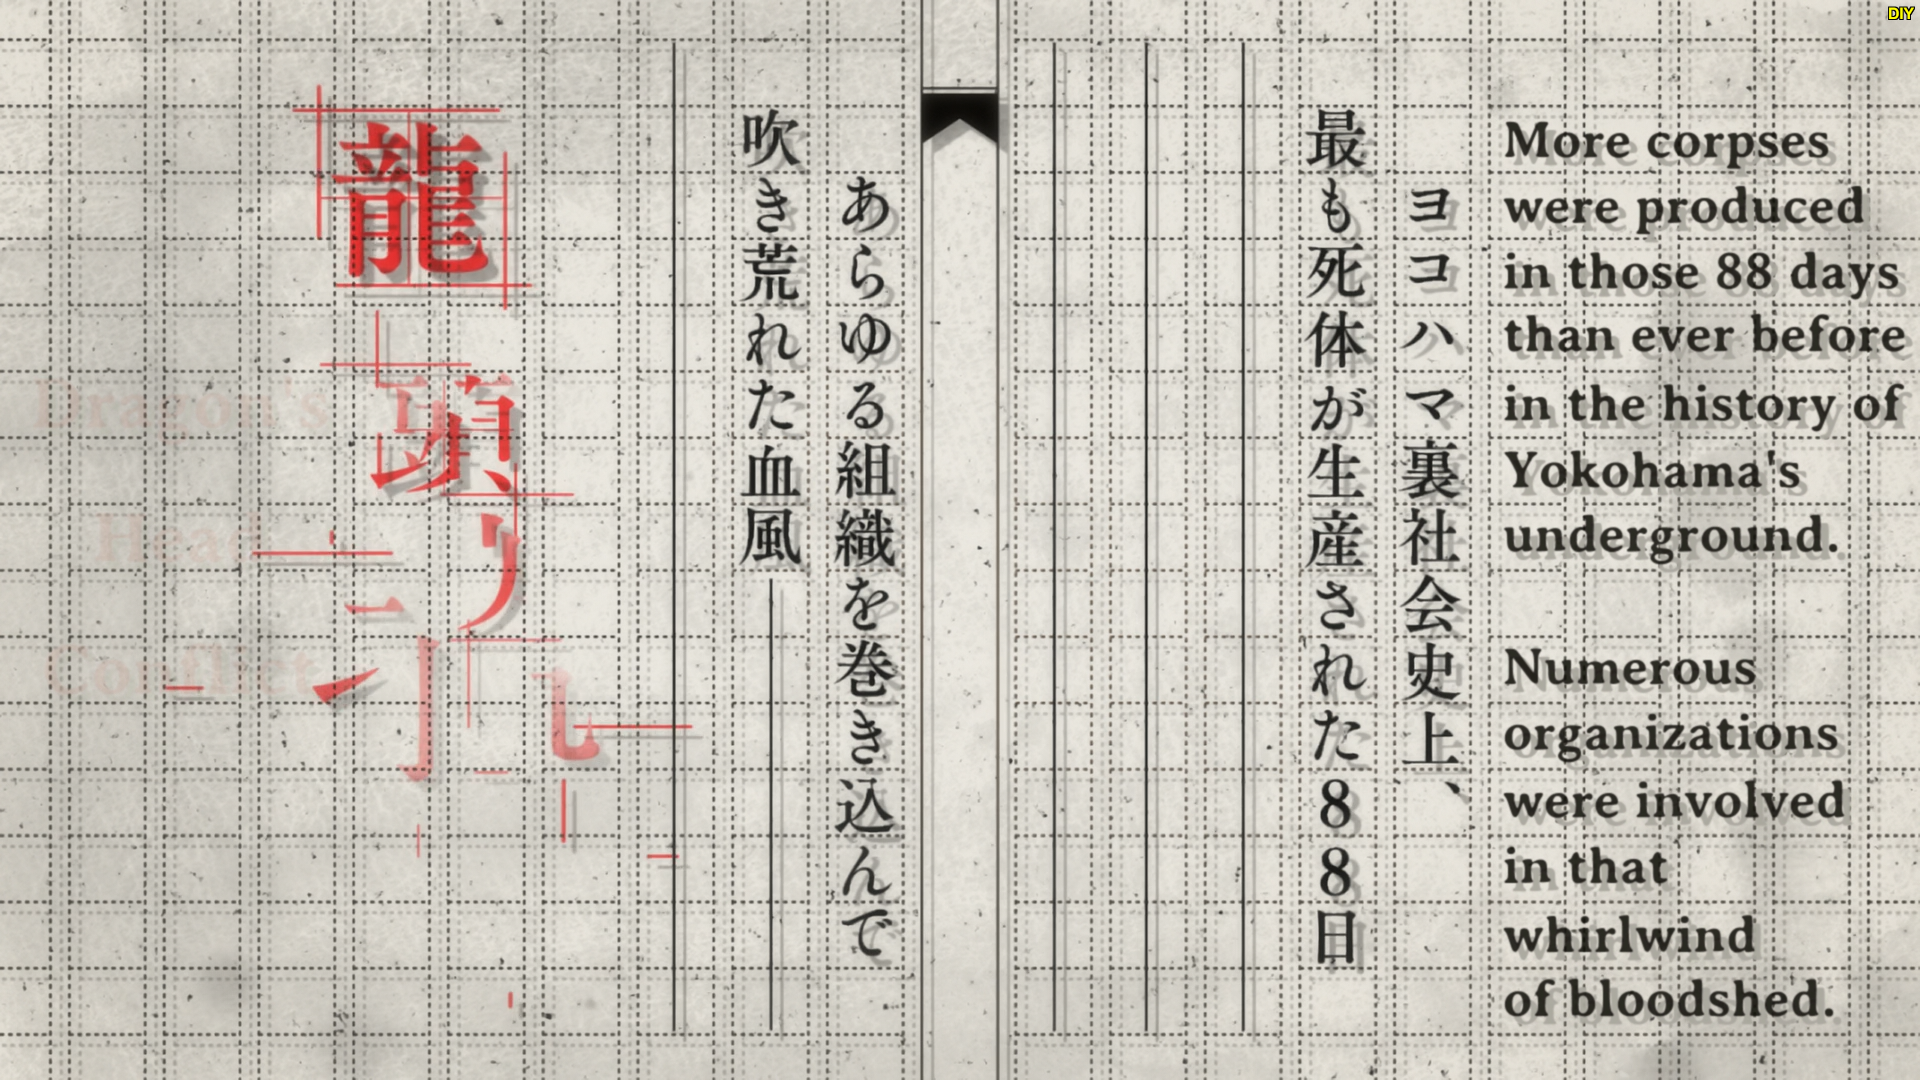 DIY
ヨコハマ裏社会史上、
最も死体が生産された88日
あらゆる組織を巻き込んで
吹き荒れた血風――
龍頭
Dragon's
Head
Conflict
More corpses
were produced
in those 88 days
than ever before
in the history of
Yokohama's
underground.
Numerous
organizations
were involved
in that
whirlwind
of bloodshed.